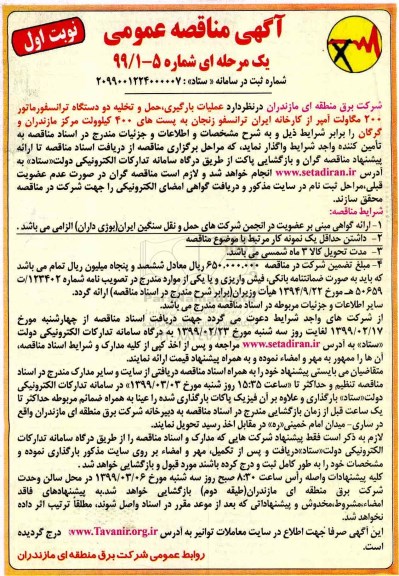 نوبت اول
آگهی مناقصه عمومی
یک مرحله ای شماره ۵-۹۹/۱
شماره ثبت در سامانه « ستاد» : ۲۰۹۹۰۰۱۲۲۴۰۰۰۰۰۷
شرکت برق منطقه ای مازندران درنظردارد عملیات بارگیری،حمل و تخلیه دو دستگاه ترانسفورماتور
۲۰۰ مگاولت آمپر از کارخانه ایران ترانسفو زنجان به پست های ۴۰۰ کیلوولت مرکز مازندران و
گرگان را برابر شرایط ذیل و به شرح مشخصات و اطلاعات و جزئیات مندرج در اسناد مناقصه به
تأمین کننده واجد شرایط واگذار نماید، که مراحل برگزاری مناقصه از دریافت اسناد مناقصه تا ارائه
پیشنهاد مناقصه گران و بازگشایی پاکت از طریق درگاه سامانه تدارکات الکترونیکی دولت«ستاد» به
آدرس www.setadiran.ir انجام خواهد شد و لازم است مناقصه گران در صورت عدم عضویت
قبلی،مراحل ثبت نام در سایت مذکور و دریافت گواهی امضای الکترونیکی را جهت شرکت در مناقصه
محقق سازند.
شرایط مناقصه:
۱- ارائه گواهی مبنی بر عضویت در انجمن شرکت های حمل و نقل سنگین ایران(بوژی داران) الزامی می باشد .
۲- داشتن حداقل یک نمونه کار مرتبط با موضوع مناقصه
۳- مدت تحویل کالا ۳ ماه شمسی می باشد.
۴- مبلغ تضمین شرکت در مناقصه ۶۵۰.۰۰۰.۰۰۰ ریال معادل ششصد و پنجاه میلیون ریال تمام می باشد
که باید به صورت ضمانتنامه بانکی، فیش واریزی و یا یکی از موارد مندرج در تصویب نامه شماره ۱۲۳۴۰۲/ت
۵۰۶۵۹ هـ مورخ ۱۳۹۴/۹/۲۲ هیأت وزیران(برابر شرح مندرج در اسناد مناقصه) ارائه گردد.
سایر اطلاعات و جزئیات مربوطه در اسناد مناقصه مندرج می باشد.
از شرکت های واجد شرایط دعوت می گردد جهت دریافت اسناد مناقصه از چهارشنبه مورخ
۱۳۹۹/۰۲/۱۷ لغایت روز سه شنبه مورخ ۱۳۹۹/۰۲/۲۳ به درگاه سامانه تدارکات الکترونیکی دولت
«ستاد» به آدرس www.setadiran.ir مراجعه و پس از اخذ کپی از کلیه مدارک و شرایط اسناد مناقصه،
آن ها را ممهور به مهر و امضاء نموده و به همراه پیشنهاد قیمت ارائه نمایند.
متقاضیان می بایستی پیشنهاد خود را به همراه اسناد مناقصه دریافتی از سایت و سایر مدارک مندرج در اسناد
مناقصه تنظیم و حداکثر تا «ساعت ۱۵:۳۵ روز شنبه مورخ ۱۳۹۹/۰۳/۰۳» در سامانه تدارکات الکترونیکی
دولت«ستاد» بارگذاری و علاوه بر آن فیزیک پاکات بارگذاری شده را عینا به همراه ضمائم مربوطه حداکثر تا
یک ساعت قبل از زمان بازگشایی مندرج در اسناد مناقصه به دبیرخانه شرکت برق منطقه ای مازندران واقع
در ساری- میدان امام خمینی«ره» در مقابل اخذ رسید تحویل نمایند.
لازم به ذکر است فقط پیشنهاد شرکت هایی که مدارک و اسناد مناقصه را از طریق درگاه سامانه تدارکات
الکترونیکی دولت«ستاد»دریافت و پس از تکمیل، مهر و امضاء بر روی سایت مذکور بارگذاری نموده و
مشخصات خود را به طور کامل ثبت و درج کرده باشند مورد قبول و بازگشایی خواهد شد .
کلیه پیشنهادات واصله رأس ساعت ۸:۳۰ صبح روز سه شنبه مورخ ۱۳۹۹/۰۳/۰۶ در محل سالن وحدت
شرکت برق منطقه ای مازندران(طبقه دوم) بازگشایی خواهد شد.به پیشنهادهای فاقد
امضاء،مشروط،مخدوش و پیشنهاداتی که بعد از موعد مقرر در اسناد واصل شوند، مطلقا ترتیب اثر داده
نخواهد شد.
این آگهی صرفا جهت اطلاع در سایت معاملات توانیر به آدرس www.Tavanir.org.ir درج گردیده
است.
روابط عمومی شرکت برق منطقه ای مازندران